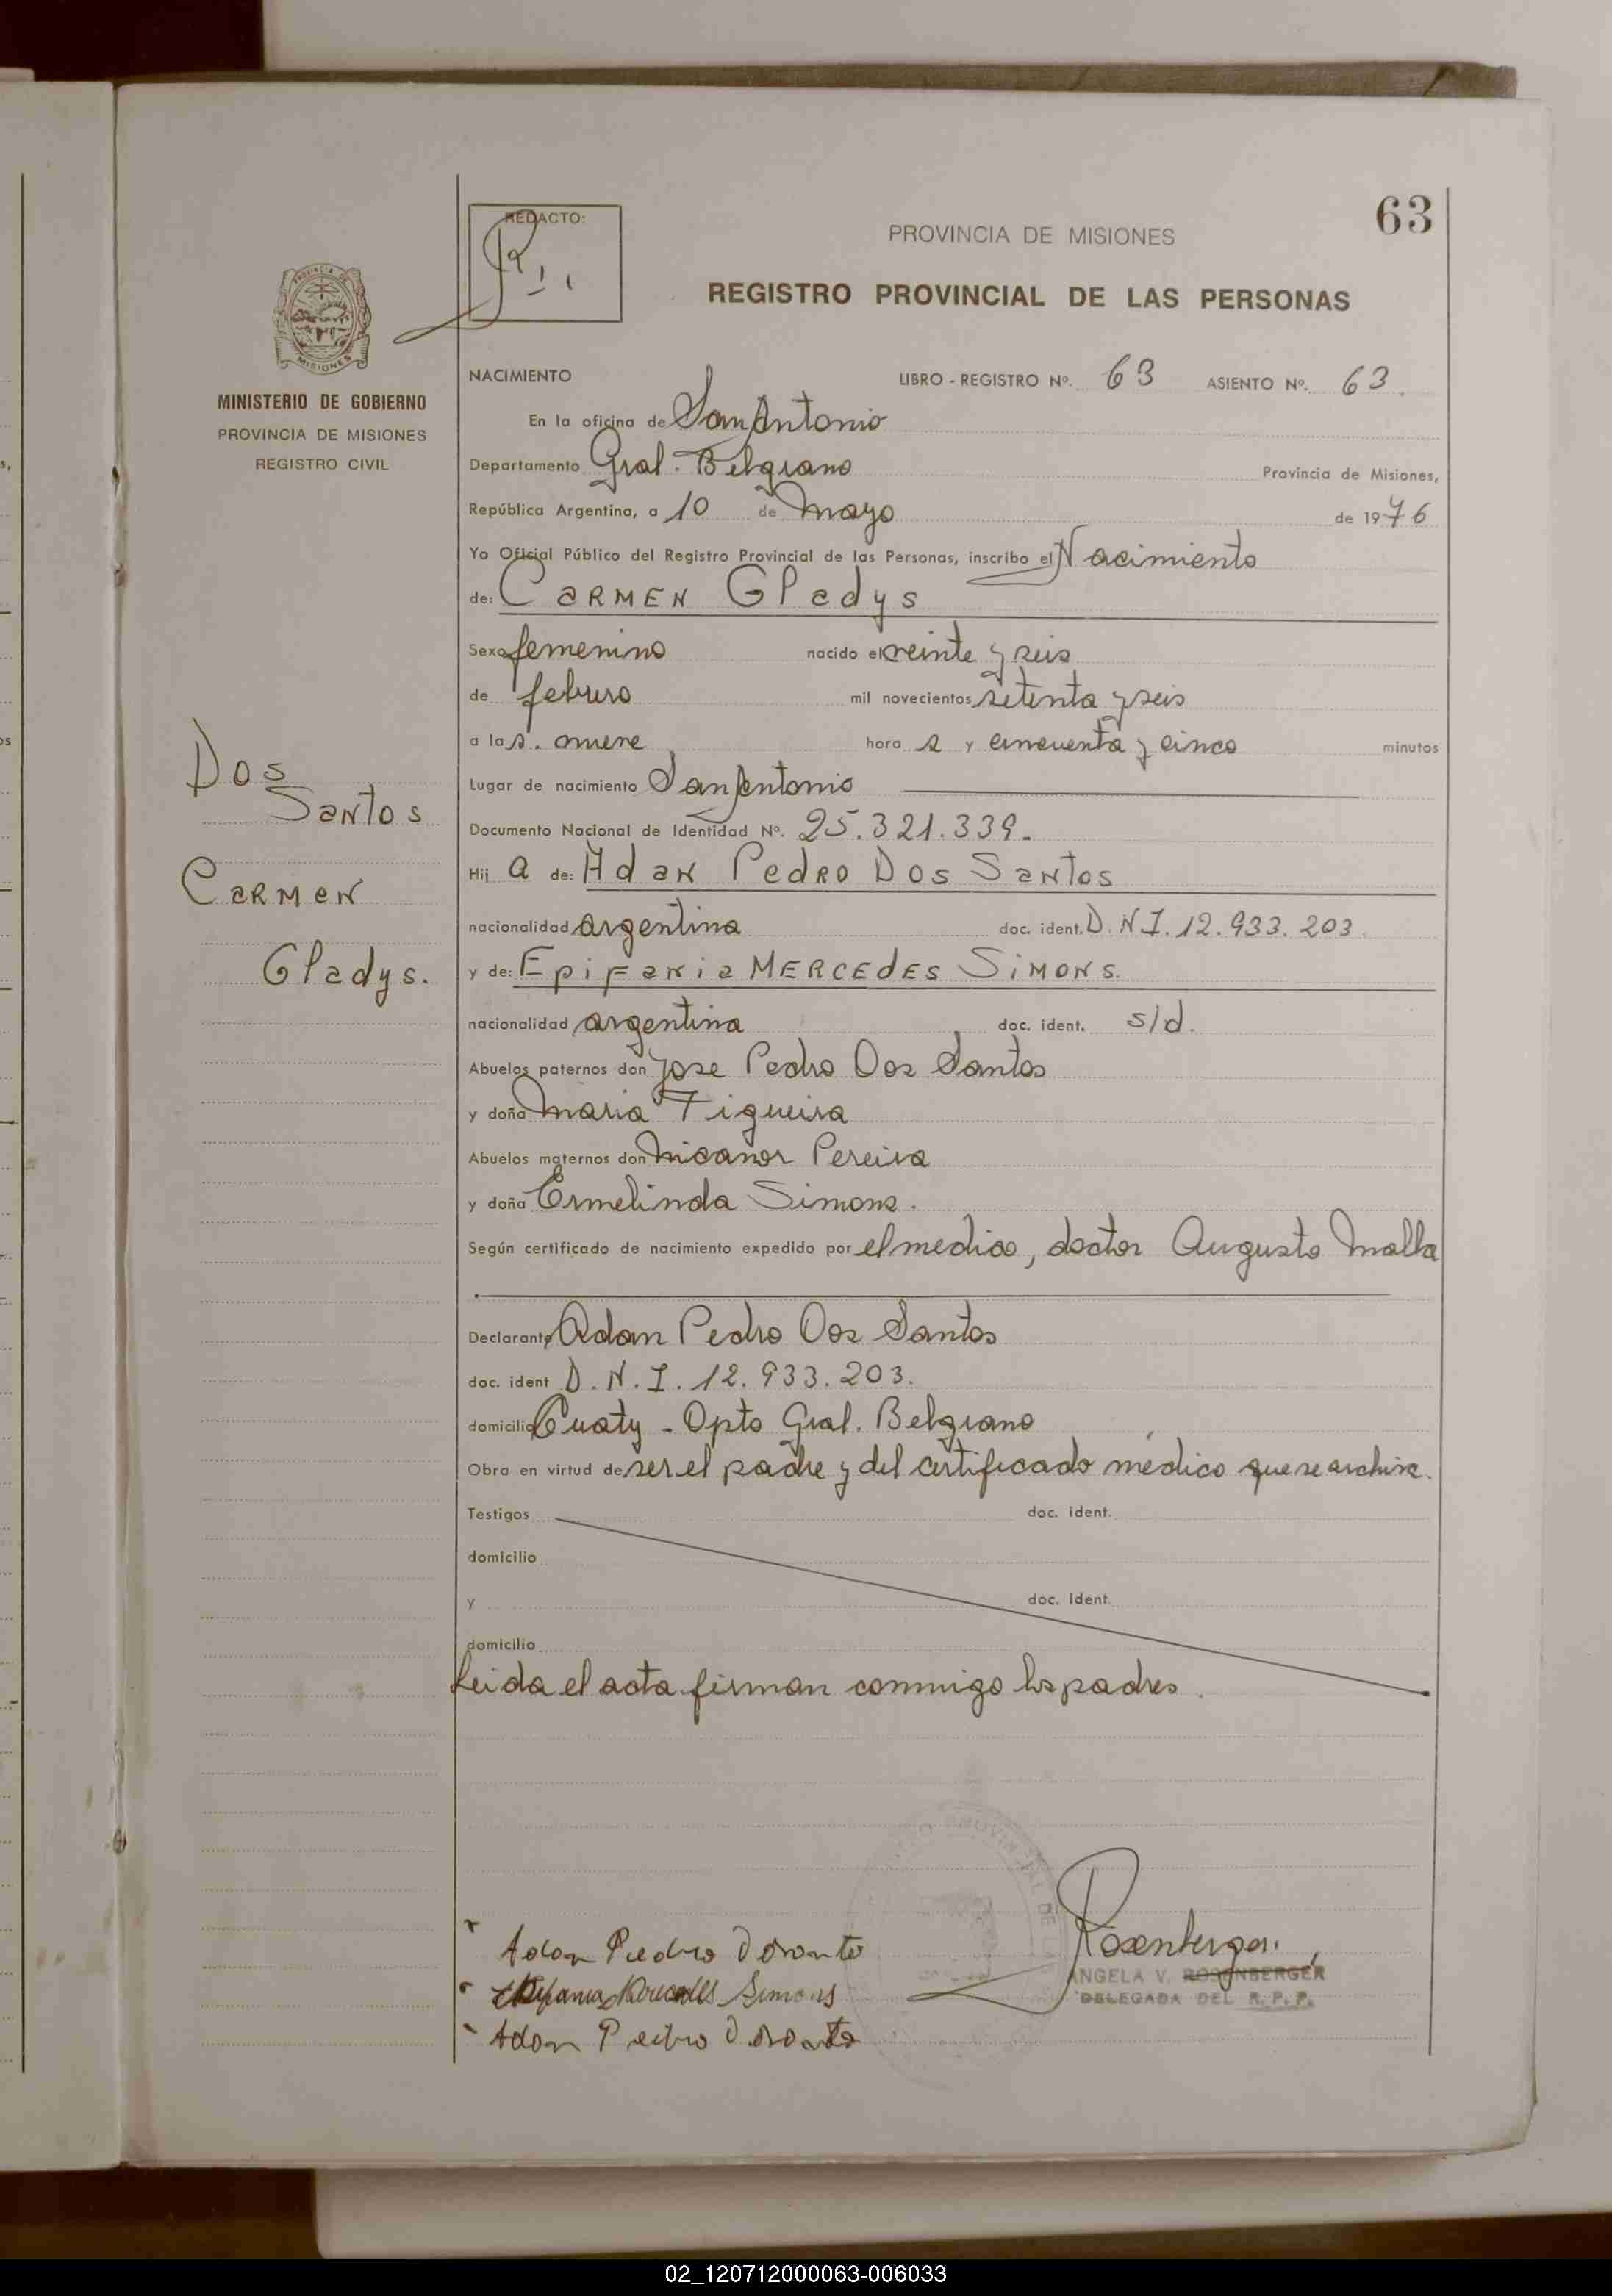 63
REDACTO:
PROVINCIA DE MISIONES
REGISTRO PROVINCIAL DE LAS PERSONAS
PROVINCIA DE
MISIONES
MINISTERIO DE GOBIERNO
PROVINCIA DE MISIONES
REGISTRO CIVIL
Dos
Santos
Carmen
Gladys.
NACIMIENTO LIBRO - REGISTRO Nº. 63 ASIENTO Nº. 63.
En la oficina de San Antonio
Departamento Gral. Belgrano Provincia de Misiones,
República Argentina, a 10 de Mayo de 1976
Yo Oficial Público del Registro Provincial de las Personas, inscribo el Nacimiento
de: CARMEN Gladys
Sexo femenino nacido el veinte y seis
de febrero mil novecientos setenta y seis
a las. nueve hora s y cincuenta y cinco minutos
Lugar de nacimiento San Antonio
Documento Nacional de Identidad Nº. 25.321.339.
Hij a de: Adan Pedro Dos Santos
nacionalidad argentina doc. ident. D.N.I. 12.933.203.
y de: Epifania MERCEdES SiMONS.
nacionalidad argentina doc. ident. s/d.
Abuelos paternos don Jose Pedro Dos Santos
y doña Maria Figueira
Abuelos maternos don Nicanor Pereira
y doña Ermelinda Simons.
Según certificado de nacimiento expedido por el medico, doctor Augusto Malla
Declarante Adan Pedro Dos Santos
doc. ident D.N.I. 12.933.203.
domicilio Cuaty - Dpto Gral. Belgrano
Obra en virtud de ser el padre y del certificado médico que se archiva.
Testigos doc. ident.
domicilio
y doc. Ident.
domicilio
Leida el acta firman conmigo los padres.
Adan Pedro
Epifania Mercedes Simons
Adan Pedro
Rosenberger.
ANGELA V. ROSENBERGER
DELEGADA DEL R.P.P.
02_120712000063-006033